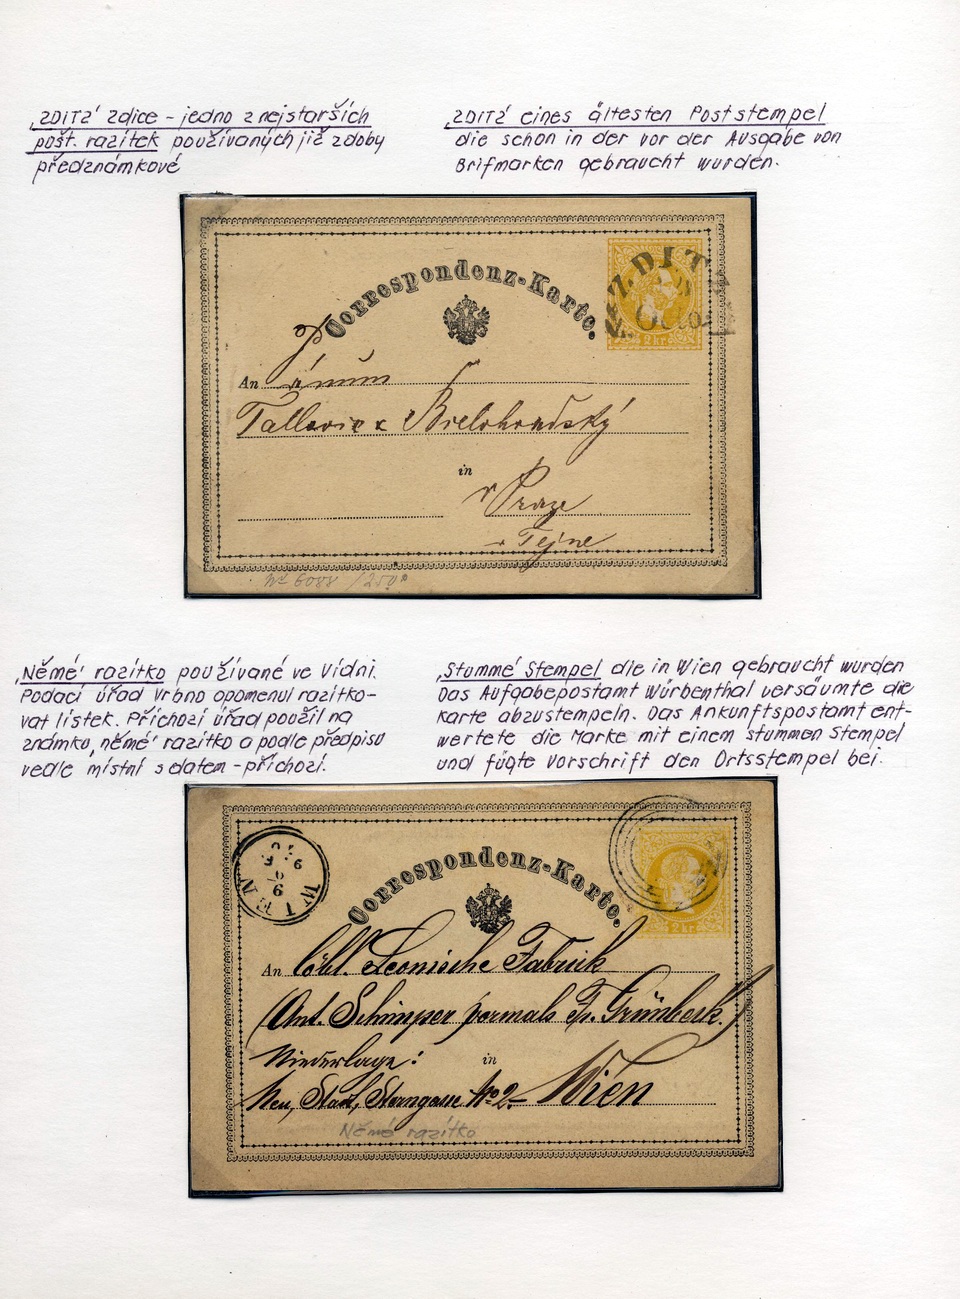 ‚ZDITZ‘ Zdice - jedno z nejstarších
pošt. razítek používaných již z doby
předznámkové
‚ZDITZ‘ eines ältesten Poststempel
die schon in der vor der Ausgabe von
Brifmarken gebraucht wurden.
Correspondenz-Karte.
ZDITZ
Octo
2 kr.
An
Bielohradský
in
v Praze
v Tejně
No 6088 /250
‚Němé‘ razítko používané ve Vídni.
Podací úřad Vrbno opomenul razítko-
vat lístek. Příchozí úřad použil na
známku ‚němé‘ razítko a podle předpisu
vedle místní s datem - příchozí.
‚Stumme‘ Stempel die in Wien gebraucht wurden
Das Aufgabepostamt Würbenthal versäumte die
Karte abzustempeln. Das Ankunftspostamt ent-
wertete die Marke mit einem stummen Stempel
und fügte vorschrift den Ortsstempel bei.
WIEN
Correspondenz-Karte.
2 kr.
An löbl. Leonische Fabrik
(Ant. Schimper vormals Fr. Grünbeck.)
Niederlage: in
Neu, Stadt, Sterngasse No 2. Wien
Němé razítko